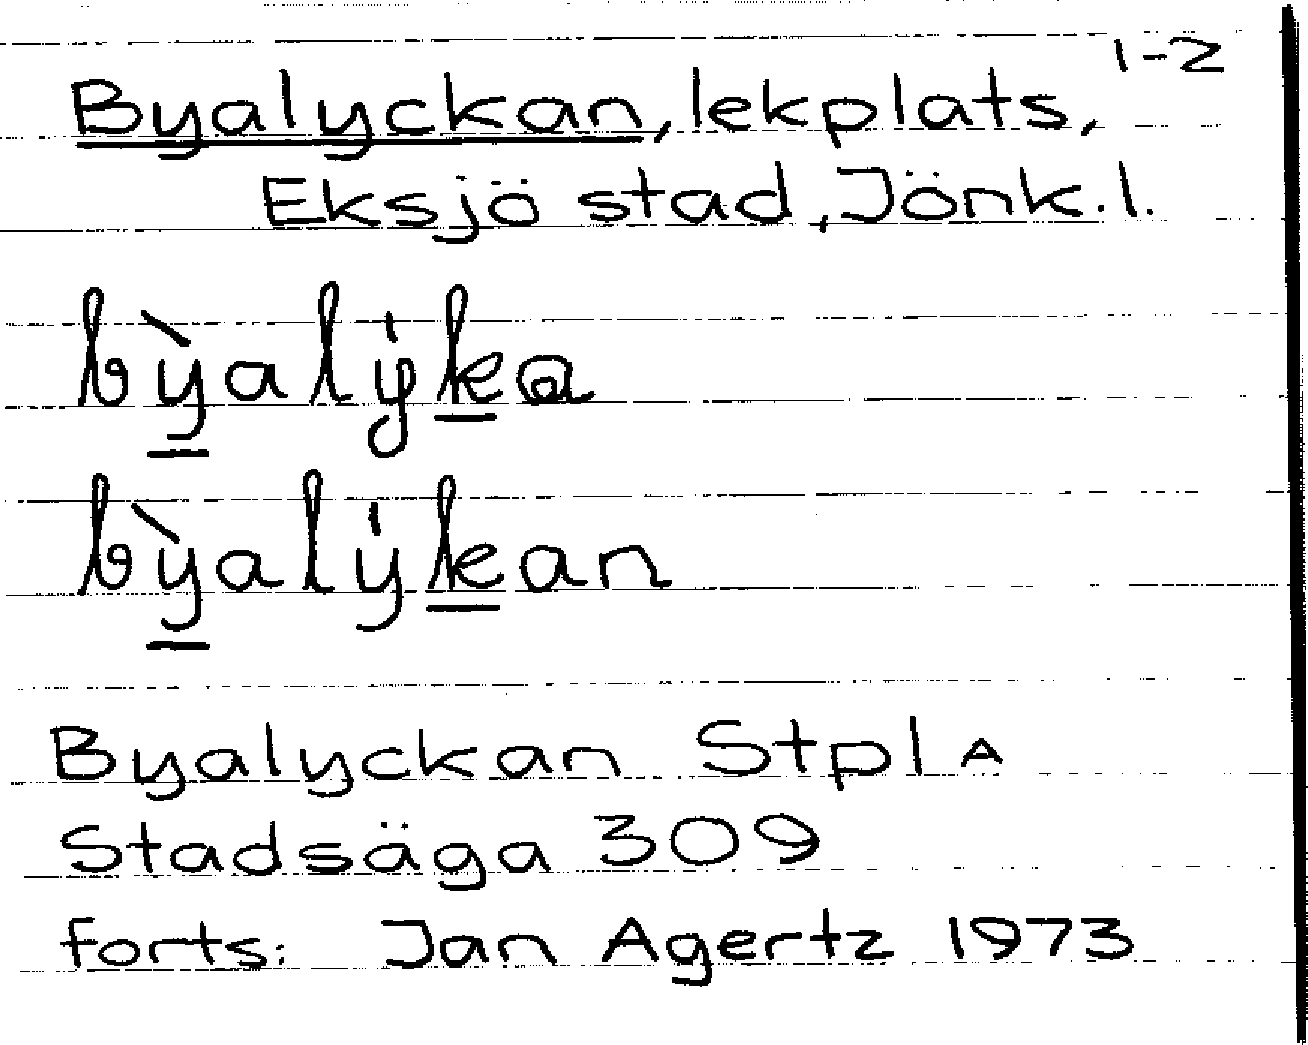 1-2
Byalyckan, lekplats,
Eksjö stad, Jönk. l.
bỳalẏka
bỳalẏkan
Byalyckan Stpl A
Stadsäga 309
forts: Jan Agertz 1973